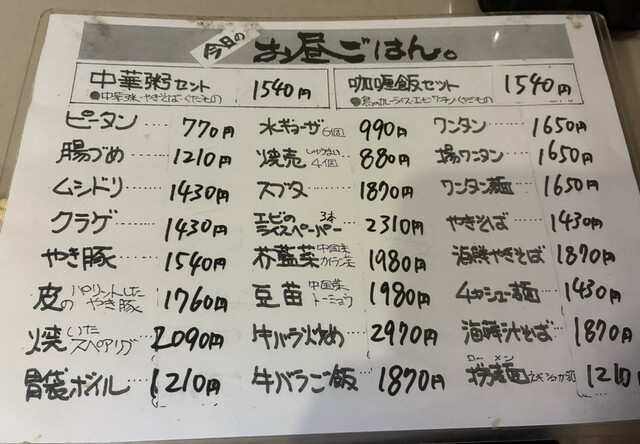 今日の お昼ごはん。
中華粥セット 1540円
●中華粥・やきそば・くだもの
咖喱飯セット 1540円
ピータン 770円
腸づめ 1210円
ムシドリ 1430円
クラゲ 1430円
やき豚 1540円
皮の パリッとした やき豚 1760円
焼いた スペアリブ 2090円
胃袋ボイル 1210円
水ギョーザ 6個 990円
焼売 しゅうまい 4個 880円
スブタ 1870円
エビの ライスペーパー 3本 2310円
芥藍菜 中国菜 カイラン菜 1980円
豆苗 中国菜 トーミョウ 1980円
牛バラ炒め 2970円
牛バラご飯 1870円
ワンタン 1650円
揚ワンタン 1650円
ワンタン麺 1650円
やきそば 1430円
海鮮やきそば 1870円
麺 1430円
海鮮汁そば 1870円
ローメン
撈麺 1210